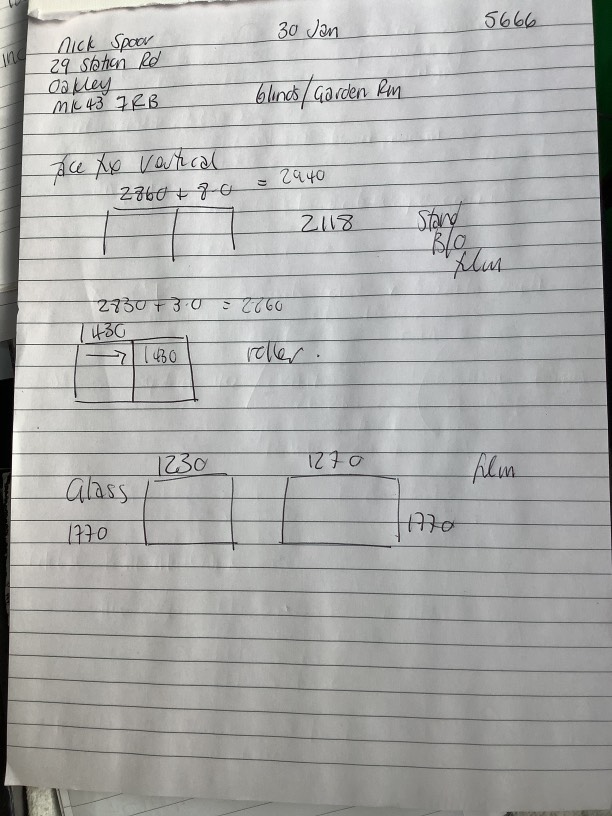 Nick Spoor
30 Jan
5666
29 Station Rd
Oakley
MK43 7RB
blinds/Garden Rm
face fix vertical
2860 + 8.0 = 2940
2118
Stand
B/O
film
2830 + 3.0 = 2860
1430
1430
roller.
1230
1270
film
Glass
1770
1770